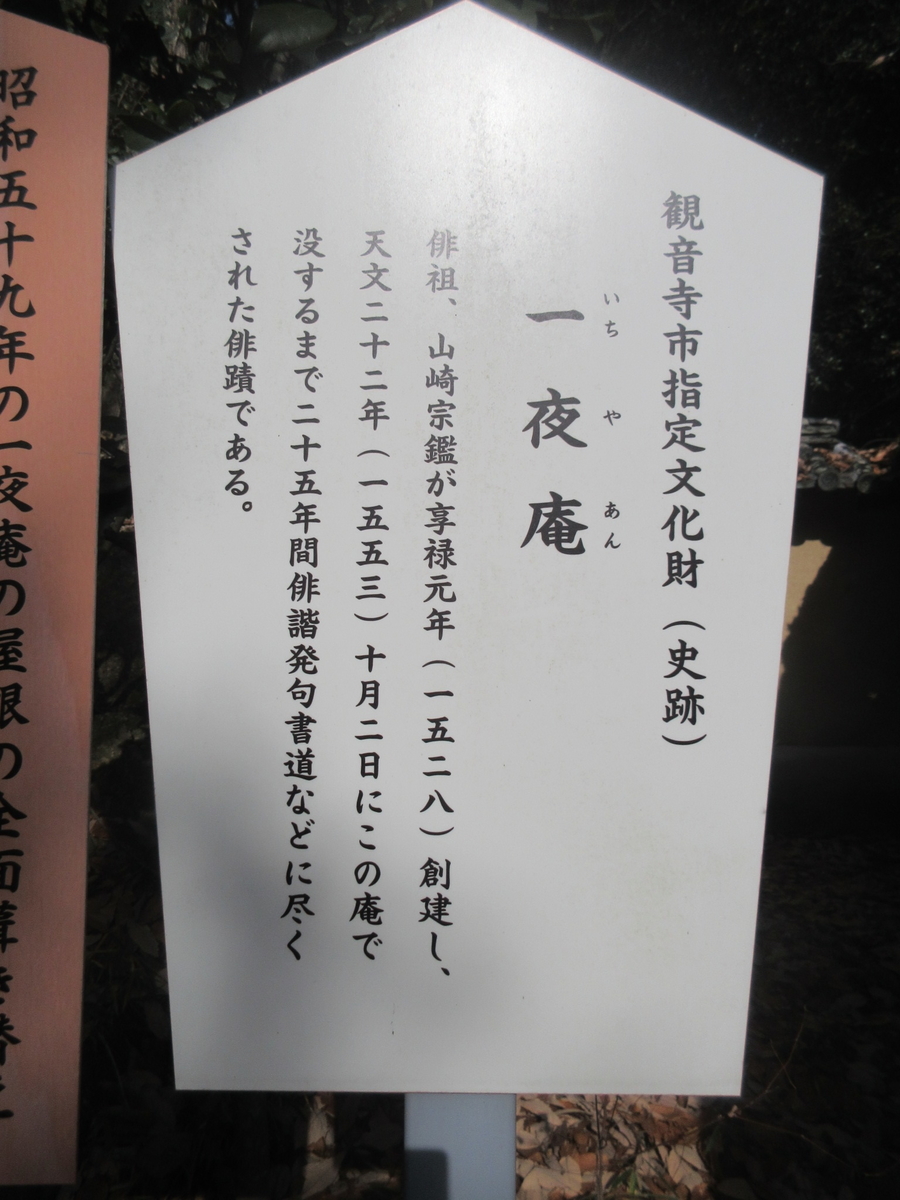 観音寺市指定文化財（史跡）
いちやあん
一夜庵
俳祖、山崎宗鑑が享禄元年（一五二八）創建し、
天文二十二年（一五五三）十月二日にこの庵で
没するまで二十五年間俳諧発句書道などに尽く
された俳蹟である。
昭和五十九年の一夜庵の屋根の全面葺き替え